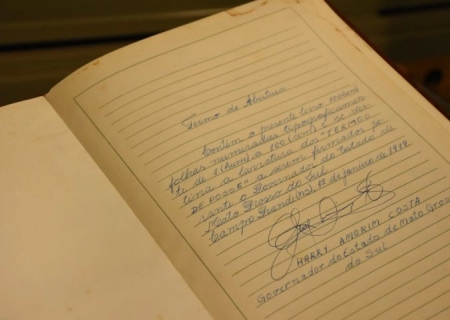 Termo de Abertura
Contém o presente livro
folhas numeradas tipograficamen
te de 1 (hum) a 100 (cem) e se des
tina a lavratura dos "TERMOS
DE POSSE" a serem firmados pe
rante o Governador do Estado de
Mato Grosso do Sul.
Campo Grande(MS), 1º de janeiro de 1979
HARRY AMORIM COSTA
Governador do Estado de Mato Gros
do Sul